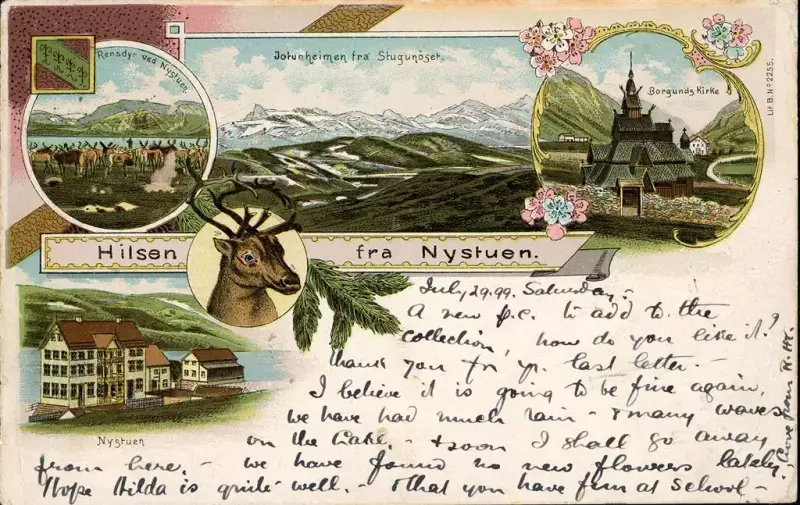 Rensdyr ved Nystuen
Jotunheimen fra Stugunöset.
Borgunds Kirke
Lit B. Nº 2255.
Hilsen fra Nystuen.
Nystuen
July 29.99. Saturday.-
A new p.c. to add to the
collection, how do you like it?
Thank you for yr. last letter.-
I believe it is going to be fine again,
we have had much rain - & many waves
on the lake. - & soon I shall go away
from here. - we have found no new flowers lately.
Hope Hilda is quite well. - & that you have fun at School -
Love from